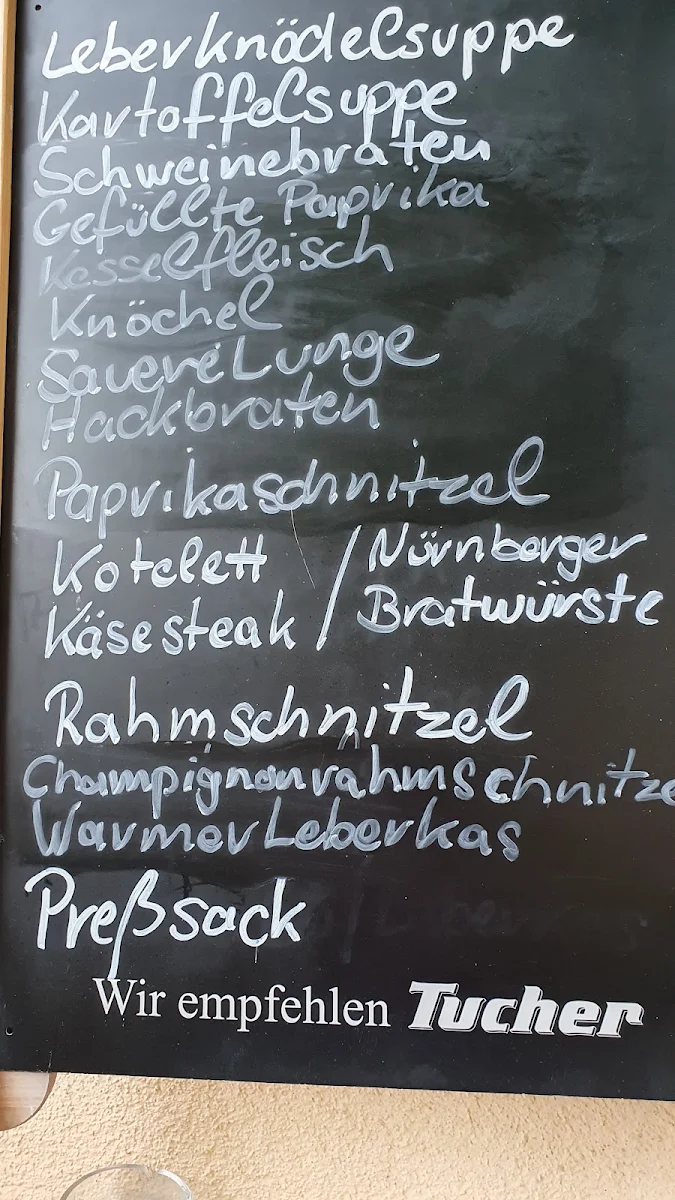 Leberknödelsuppe
Kartoffelsuppe
Schweinebraten
Gefüllte Paprika
Kesselfleisch
Knöchel
Saure Lunge
Hackbraten
Paprikaschnitzel
Kotelett / Nürnberger
Käsesteak / Bratwürste
Rahmschnitzel
Champignonrahmschnitze
Warmer Leberkas
Preßsack
Wir empfehlen Tucher